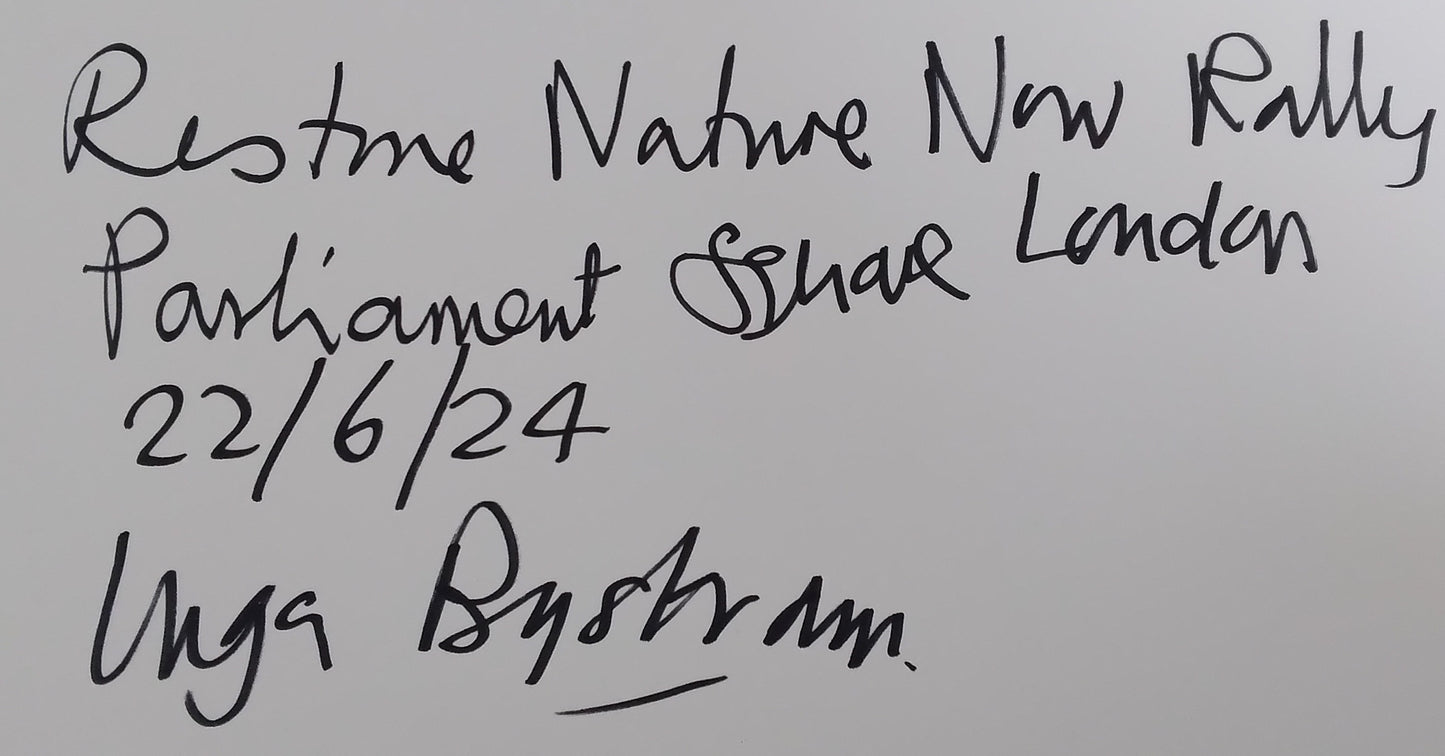 Restore Nature Now Rally
Parliament Square London
22/6/24
Inga Bystram.